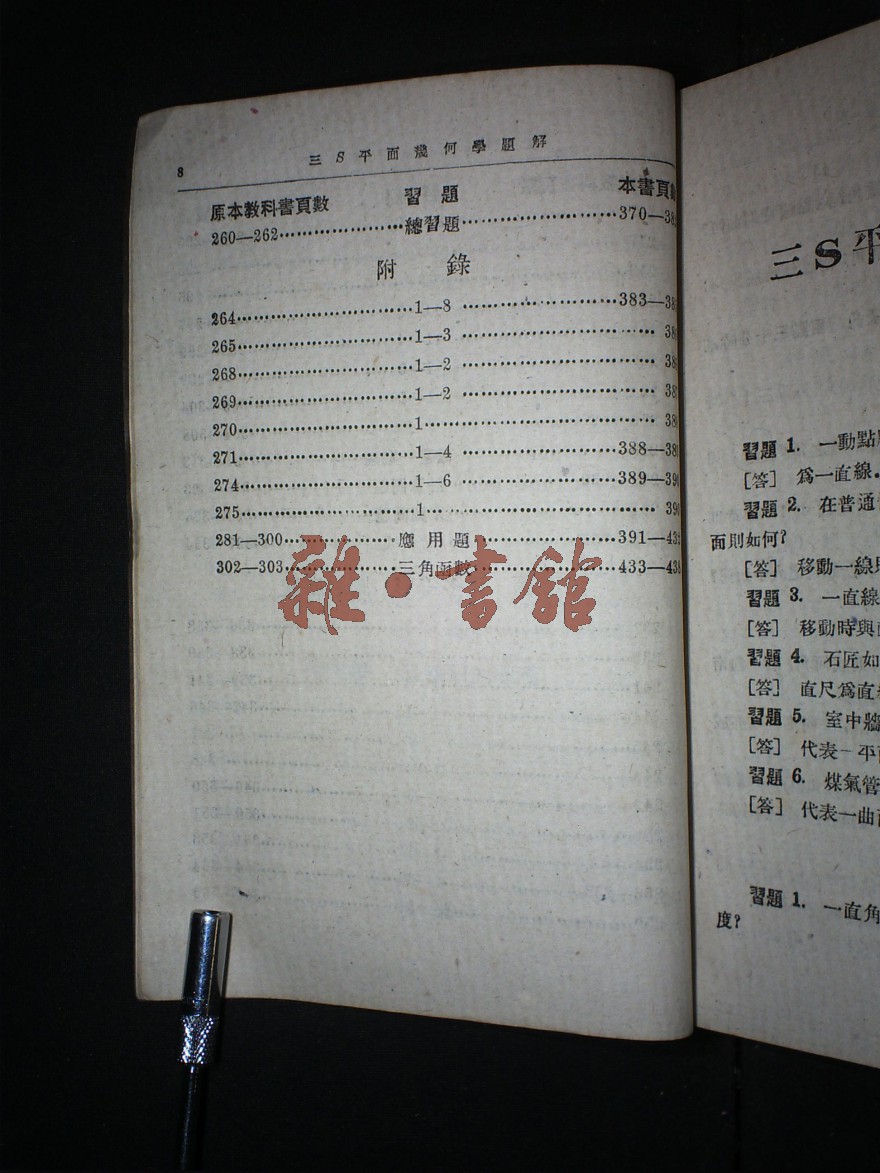 8
三S平面幾何學題解
原本教科書頁數 習題 本書頁
260—262 總習題 370—38
附錄
264 1—8 383—38
265 1—3 38
268 1—2 38
269 1—2 38
270 1 38
271 1—4 388—38
274 1—6 389—390
275 1 390
281—300 應用題 391—43
302—303 三角函數 433—43
雜·書館
三S平
習題 1. 一動點
[答] 爲一直線.
習題 2. 在普通
面則如何?
[答] 移動一線
習題 3. 一直線
[答] 移動時與
習題 4. 石匠如
[答] 直尺爲直
習題 5. 室中牆
[答] 代表一平
習題 6. 煤氣管
[答] 代表一曲
習題 1. 一直角
度?